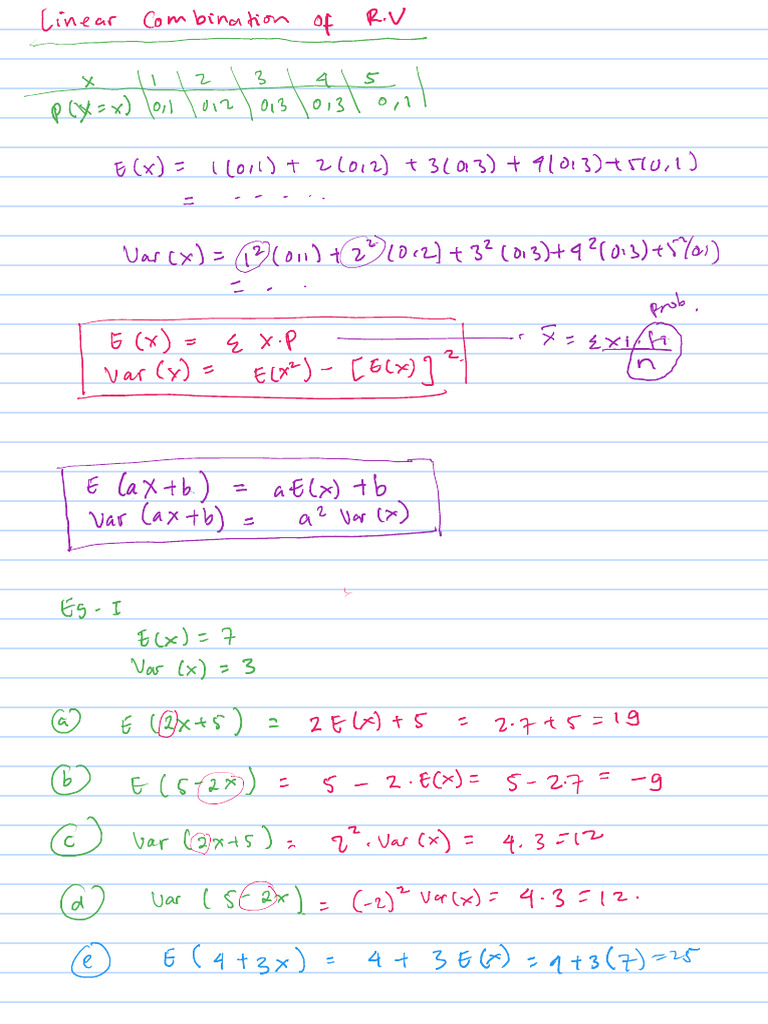 Linear Combination of R.V
x | 1 | 2 | 3 | 4 | 5
P(X=x) | 0,1 | 0,2 | 0,3 | 0,3 | 0,1
E(x) = 1(0,1) + 2(0,2) + 3(0,3) + 4(0,3) + 5(0,1)
= - - - . . .
Var(x) = 1²(0,1) + 2²(0,2) + 3²(0,3) + 4²(0,3) + 5²(0,1)
= - . .
prob.
E(x) = Σ x.p x̄ = Σ xi.fi / n
Var(x) = E(x²) - [E(x)]²
E(aX+b) = aE(x) + b
Var(ax+b) = a² Var(x)
Eg - I
E(x) = 7
Var(x) = 3
(a) E(2x+5) = 2E(x) + 5 = 2.7 + 5 = 19
(b) E(5-2x) = 5 - 2.E(x) = 5 - 2.7 = -9
(c) Var(2x+5) = 2².Var(x) = 4.3 = 12
(d) Var(5-2x) = (-2)² Var(x) = 4.3 = 12.
(e) E(4+3x) = 4 + 3E(x) = 4+3(7) = 25